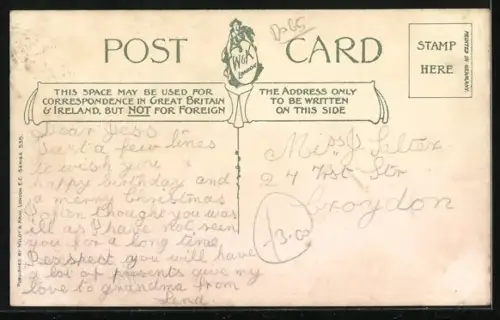 POST CARD
W&K
LONDON
THIS SPACE MAY BE USED FOR
CORRESPONDENCE IN GREAT BRITAIN
& IRELAND, BUT NOT FOR FOREIGN
THE ADDRESS ONLY
TO BE WRITTEN
ON THIS SIDE
STAMP
HERE
PRINTED IN GERMANY.
PUBLISHED BY WILDT & KRAY, LONDON, E.C. SERIES 535
Dear Jess
Just a few lines
to wish you a
happy birthday and
a merry Christmas
thought you was
ill as I have not seen
you for a long time
I exspegt you will have
a lot of presents give my
love to grandma from
Lena
Miss J.
24 Str
Croydon
3.00